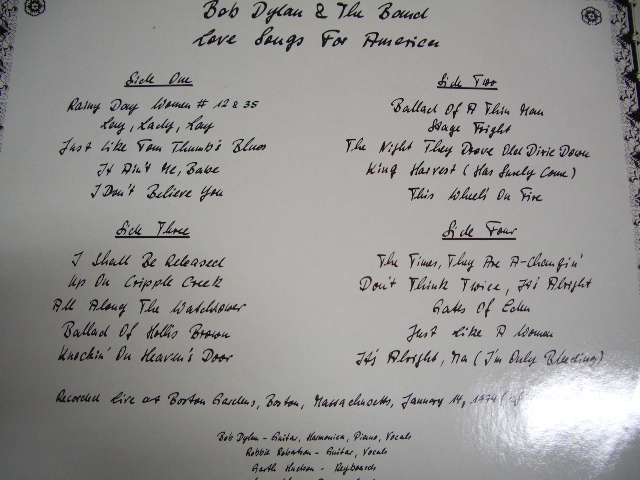 Bob Dylan & The Band
Love Songs For America
Side One
Rainy Day Women # 12 & 35
Lay, Lady, Lay
Just Like Tom Thumb's Blues
It Ain't Me, Babe
I Don't Believe You
Side Two
Ballad Of A Thin Man
Stage Fright
The Night They Drove Old Dixie Down
King Harvest (Has Surely Come)
This Wheel's On Fire
Side Three
I Shall Be Released
Up On Cripple Creek
All Along The Watchtower
Ballad Of Hollis Brown
Knockin' On Heaven's Door
Side Four
The Times, They Are A-Changin'
Don't Think Twice, It's Alright
Gates Of Eden
Just Like A Woman
It's Alright, Ma (I'm Only Bleeding)
Recorded live at Boston Gardens, Boston, Massachusetts, January 14, 1974
Bob Dylan - Guitar, Harmonica, Piano, Vocals
Robbie Robertson - Guitar, Vocals
Garth Hudson - Keyboards